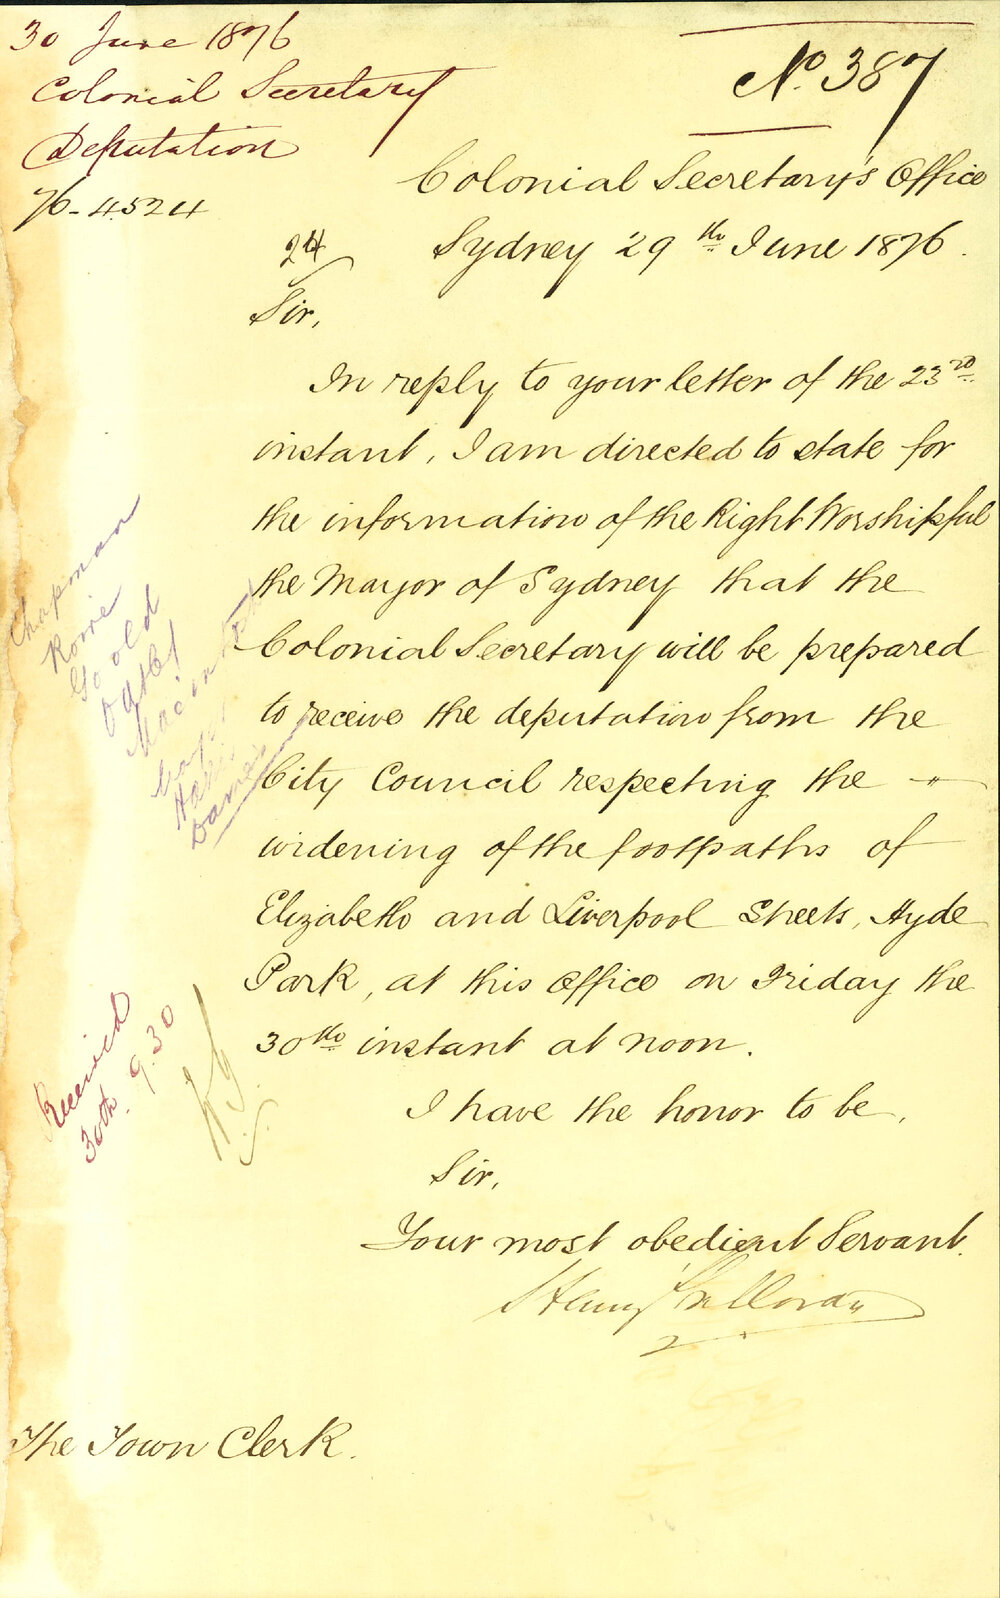 30 June 1876
Colonial Secretary
Deputation
76-4524
No. 387
Colonial Secretary's Office
Sydney 29th June 1876.
24
Sir,
In reply to your letter of the 23rd
instant, I am directed to state for
the information of the Right Worshipful
the Mayor of Sydney that the
Colonial Secretary will be prepared
to receive the deputation from the
City Council respecting the
widening of the footpaths of
Elizabeth and Liverpool Streets, Hyde
Park, at this Office on Friday the
30th instant at noon.
I have the honor to be,
Sir,
Your most obedient Servant.
Henry Halloran
The Town Clerk.
Chapman
Goold
Macintosh
Received
30th. 9.30